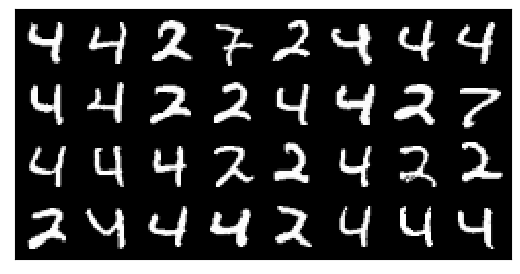 4 4 2 7 2 4 4 4
4 4 2 2 4 4 2 7
4 4 4 2 2 4 2 2
2 4 4 4 2 4 4 4